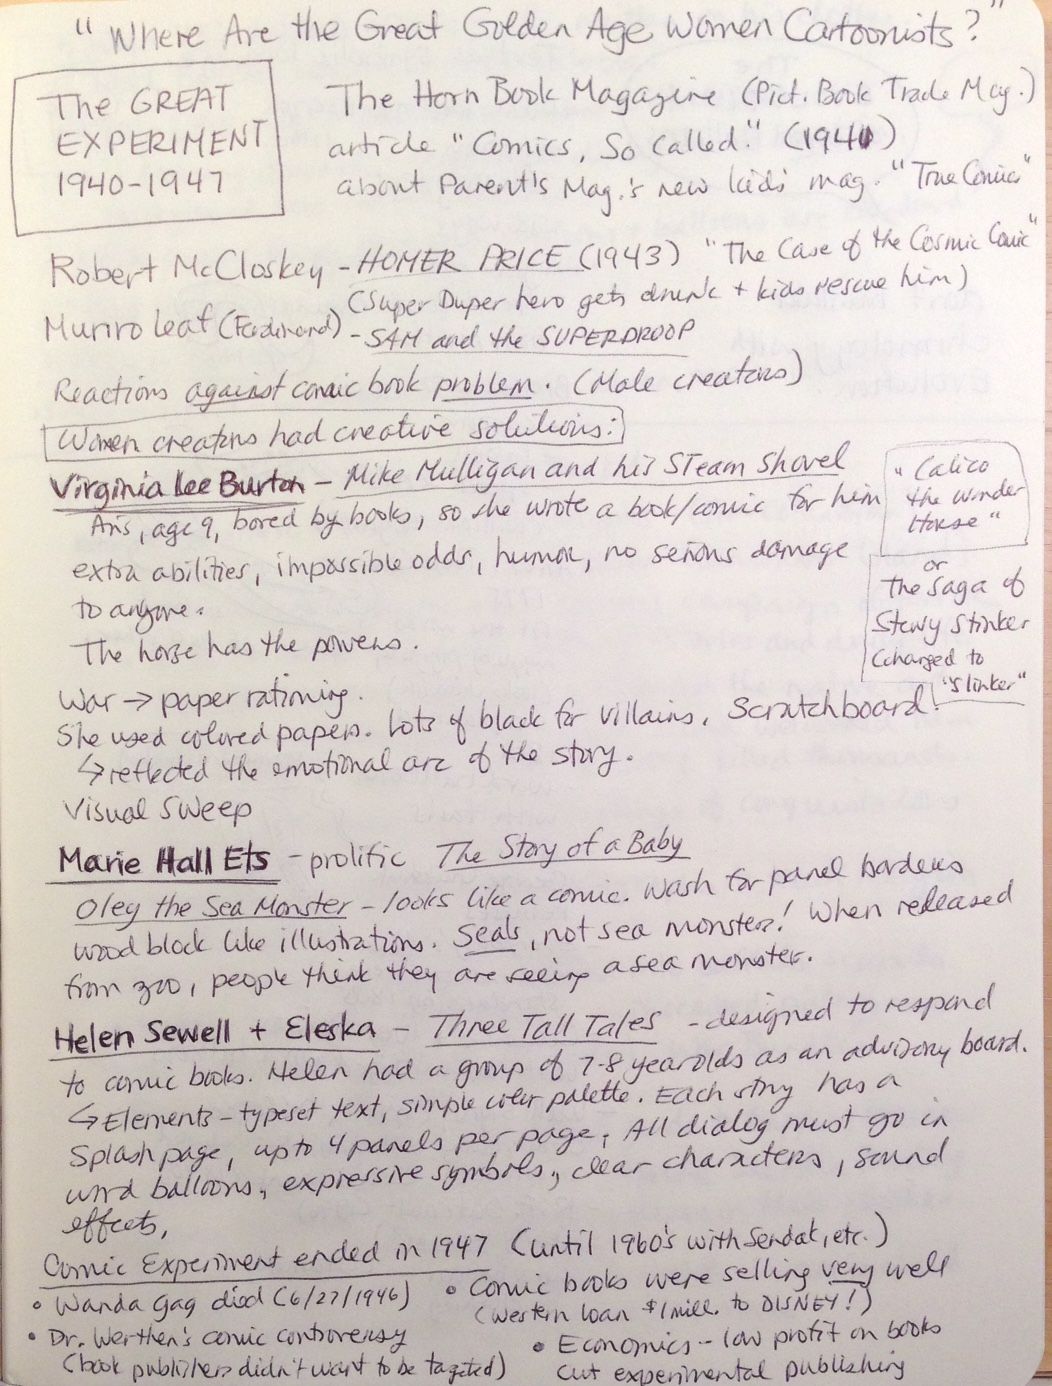 "Where Are the Great Golden Age Women Cartoonists?"
The GREAT
EXPERIMENT
1940-1947
The Horn Book Magazine (Pict. Book Trade Mag.)
article "Comics, So Called." (1941)
about Parent's Mag.'s new kids' mag. "True Comics"
Robert McCloskey - HOMER PRICE (1943) "The Case of the Cosmic Comic"
(Super Duper hero gets drunk + kids rescue him)
Munro Leaf (Ferdinand) - SAM and the SUPERDROOP
Reactions against comic book problem. (Male creators)
Women creators had creative solutions:
Virginia Lee Burton - Mike Mulligan and his Steam Shovel
Aris, age 9, bored by books, so she wrote a book/comic for him
extra abilities, impossible odds, humor, no serious damage
to anyone.
The horse has the powers.
"Calico
the Wonder
Horse"
or
The Saga of
Stewy Stinker
(changed to
"Slinker"
War → paper rationing.
She used colored papers. Lots of black for villains. Scratchboard!
↳ reflected the emotional arc of the story.
Visual Sweep
Marie Hall Ets - prolific The Story of a Baby
Oley the Sea Monster - looks like a comic. Wash for panel borders
wood block like illustrations. Seals, not sea monsters! When released
from zoo, people think they are seeing a sea monster.
Helen Sewell + Eleska - Three Tall Tales - designed to respond
to comic books. Helen had a group of 7-8 year olds as an advisory board.
↳ Elements - typeset text, simple color palette. Each story has a
Splash page, up to 4 panels per page, All dialog must go in
word balloons, expressive symbols, clear characters, sound
effects,
Comic Experiment ended in 1947 (until 1960's with Sendak, etc.)
• Wanda Gag died (6/27/1946)
• Dr. Werthen's comic controversy
(book publishers didn't want to be targeted)
• Comic books were selling very well
(Western loan $1 mill. to DISNEY!)
• Economics - low profit on books
cut experimental publishing